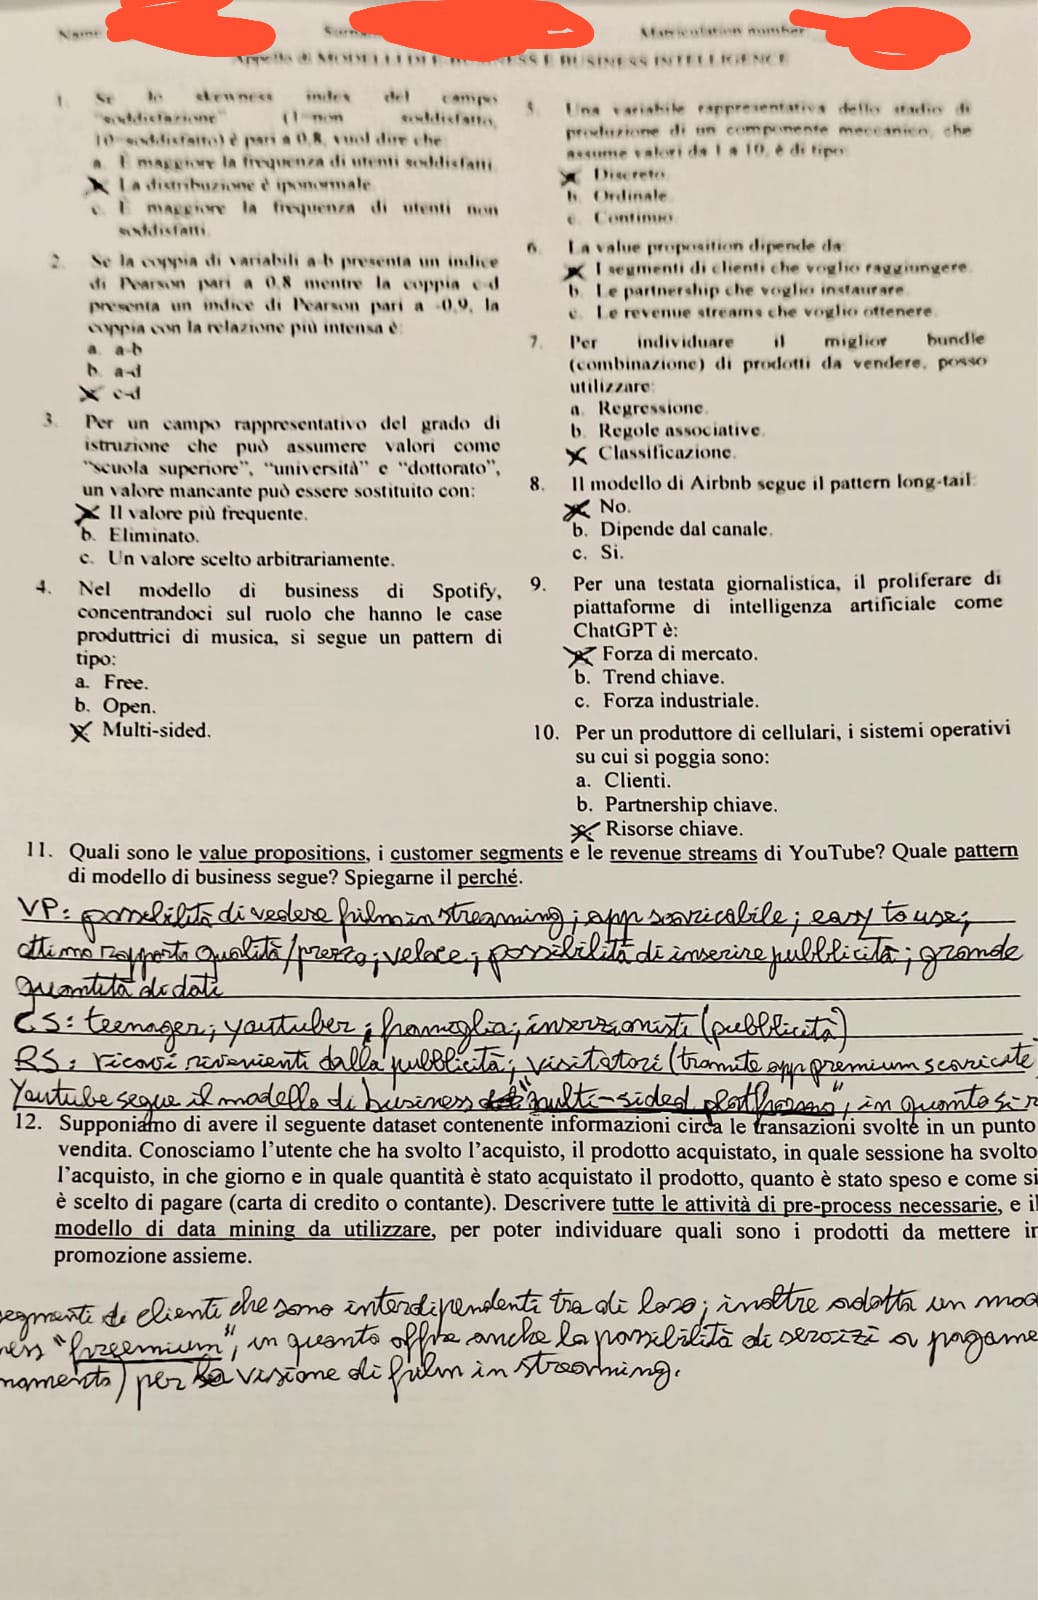 Name
Matriculation number
Appello di MODELLI DI E-BUSINESS E BUSINESS INTELLIGENCE
1. Se lo skewness index del campo
"soddisfazione" (1=non soddisfatto,
10=soddisfatto) è pari a 0.8, vuol dire che:
a. È maggiore la frequenza di utenti soddisfatti.
b. La distribuzione è iponormale.
c. È maggiore la frequenza di utenti non
soddisfatti.
2. Se la coppia di variabili a-b presenta un indice
di Pearson pari a 0.8 mentre la coppia c-d
presenta un indice di Pearson pari a -0.9, la
coppia con la relazione più intensa è:
a. a-b
b. a-d
c. c-d
3. Per un campo rappresentativo del grado di
istruzione che può assumere valori come
"scuola superiore", "università" e "dottorato",
un valore mancante può essere sostituito con:
a. Il valore più frequente.
b. Eliminato.
c. Un valore scelto arbitrariamente.
4. Nel modello di business di Spotify,
concentrandoci sul ruolo che hanno le case
produttrici di musica, si segue un pattern di
tipo:
a. Free.
b. Open.
c. Multi-sided.
5. Una variabile rappresentativa dello stadio di
produzione di un componente meccanico, che
assume valori da 1 a 10, è di tipo:
a. Discreto.
b. Ordinale.
c. Continuo.
6. La value proposition dipende da:
a. I segmenti di clienti che voglio raggiungere.
b. Le partnership che voglio instaurare.
c. Le revenue streams che voglio ottenere.
7. Per individuare il miglior bundle
(combinazione) di prodotti da vendere, posso
utilizzare:
a. Regressione.
b. Regole associative.
c. Classificazione.
8. Il modello di Airbnb segue il pattern long-tail:
a. No.
b. Dipende dal canale.
c. Si.
9. Per una testata giornalistica, il proliferare di
piattaforme di intelligenza artificiale come
ChatGPT è:
a. Forza di mercato.
b. Trend chiave.
c. Forza industriale.
10. Per un produttore di cellulari, i sistemi operativi
su cui si poggia sono:
a. Clienti.
b. Partnership chiave.
c. Risorse chiave.
11. Quali sono le value propositions, i customer segments e le revenue streams di YouTube? Quale pattern
di modello di business segue? Spiegarne il perché.
VP: possibilità di vedere film in streaming; app scaricabile; easy to use;
ottimo rapporto qualità/prezzo; veloce; possibilità di inserire pubblicità; grande
quantità di dati
CS: teenager; youtuber; famiglia; inserzionisti (pubblicità)
RS: ricavi rivenienti dalla pubblicità; visitatori (tramite app premium scaricate
Youtube segue il modello di business "multi-sided platforms", in quanto si r
12. Supponiamo di avere il seguente dataset contenente informazioni circa le transazioni svolte in un punto
vendita. Conosciamo l'utente che ha svolto l'acquisto, il prodotto acquistato, in quale sessione ha svolto
l'acquisto, in che giorno e in quale quantità è stato acquistato il prodotto, quanto è stato speso e come si
è scelto di pagare (carta di credito o contante). Descrivere tutte le attività di pre-process necessarie, e il
modello di data mining da utilizzare, per poter individuare quali sono i prodotti da mettere in
promozione assieme.
segmenti di clienti che sono interdipendenti tra di loro; inoltre adotta un mod
ness "freemium", in quanto offre anche la possibilità di servizi a pagame
namento) per la visione di film in streaming.